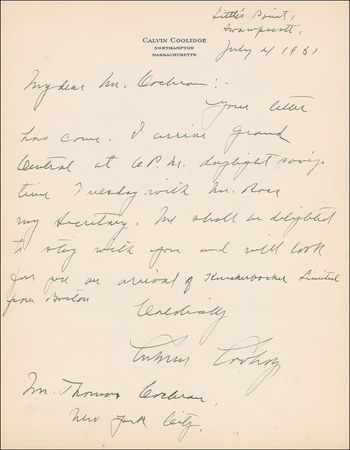 Little's Point,
Swampscott,
July 4 1931
CALVIN COOLIDGE
NORTHAMPTON
MASSACHUSETTS
My dear Mr. Cochran:-
Your letter
has come. I arrive Grand
Central at 6 P.M. daylight saving
time Tuesday with Mr. Ross
my Secretary. We shall be delighted
to stay with you and will look
for you on arrival of Knickerbocker Limited
from Boston
Cordially
Calvin Coolidge
Mr. Thomas Cochran,
New York City.